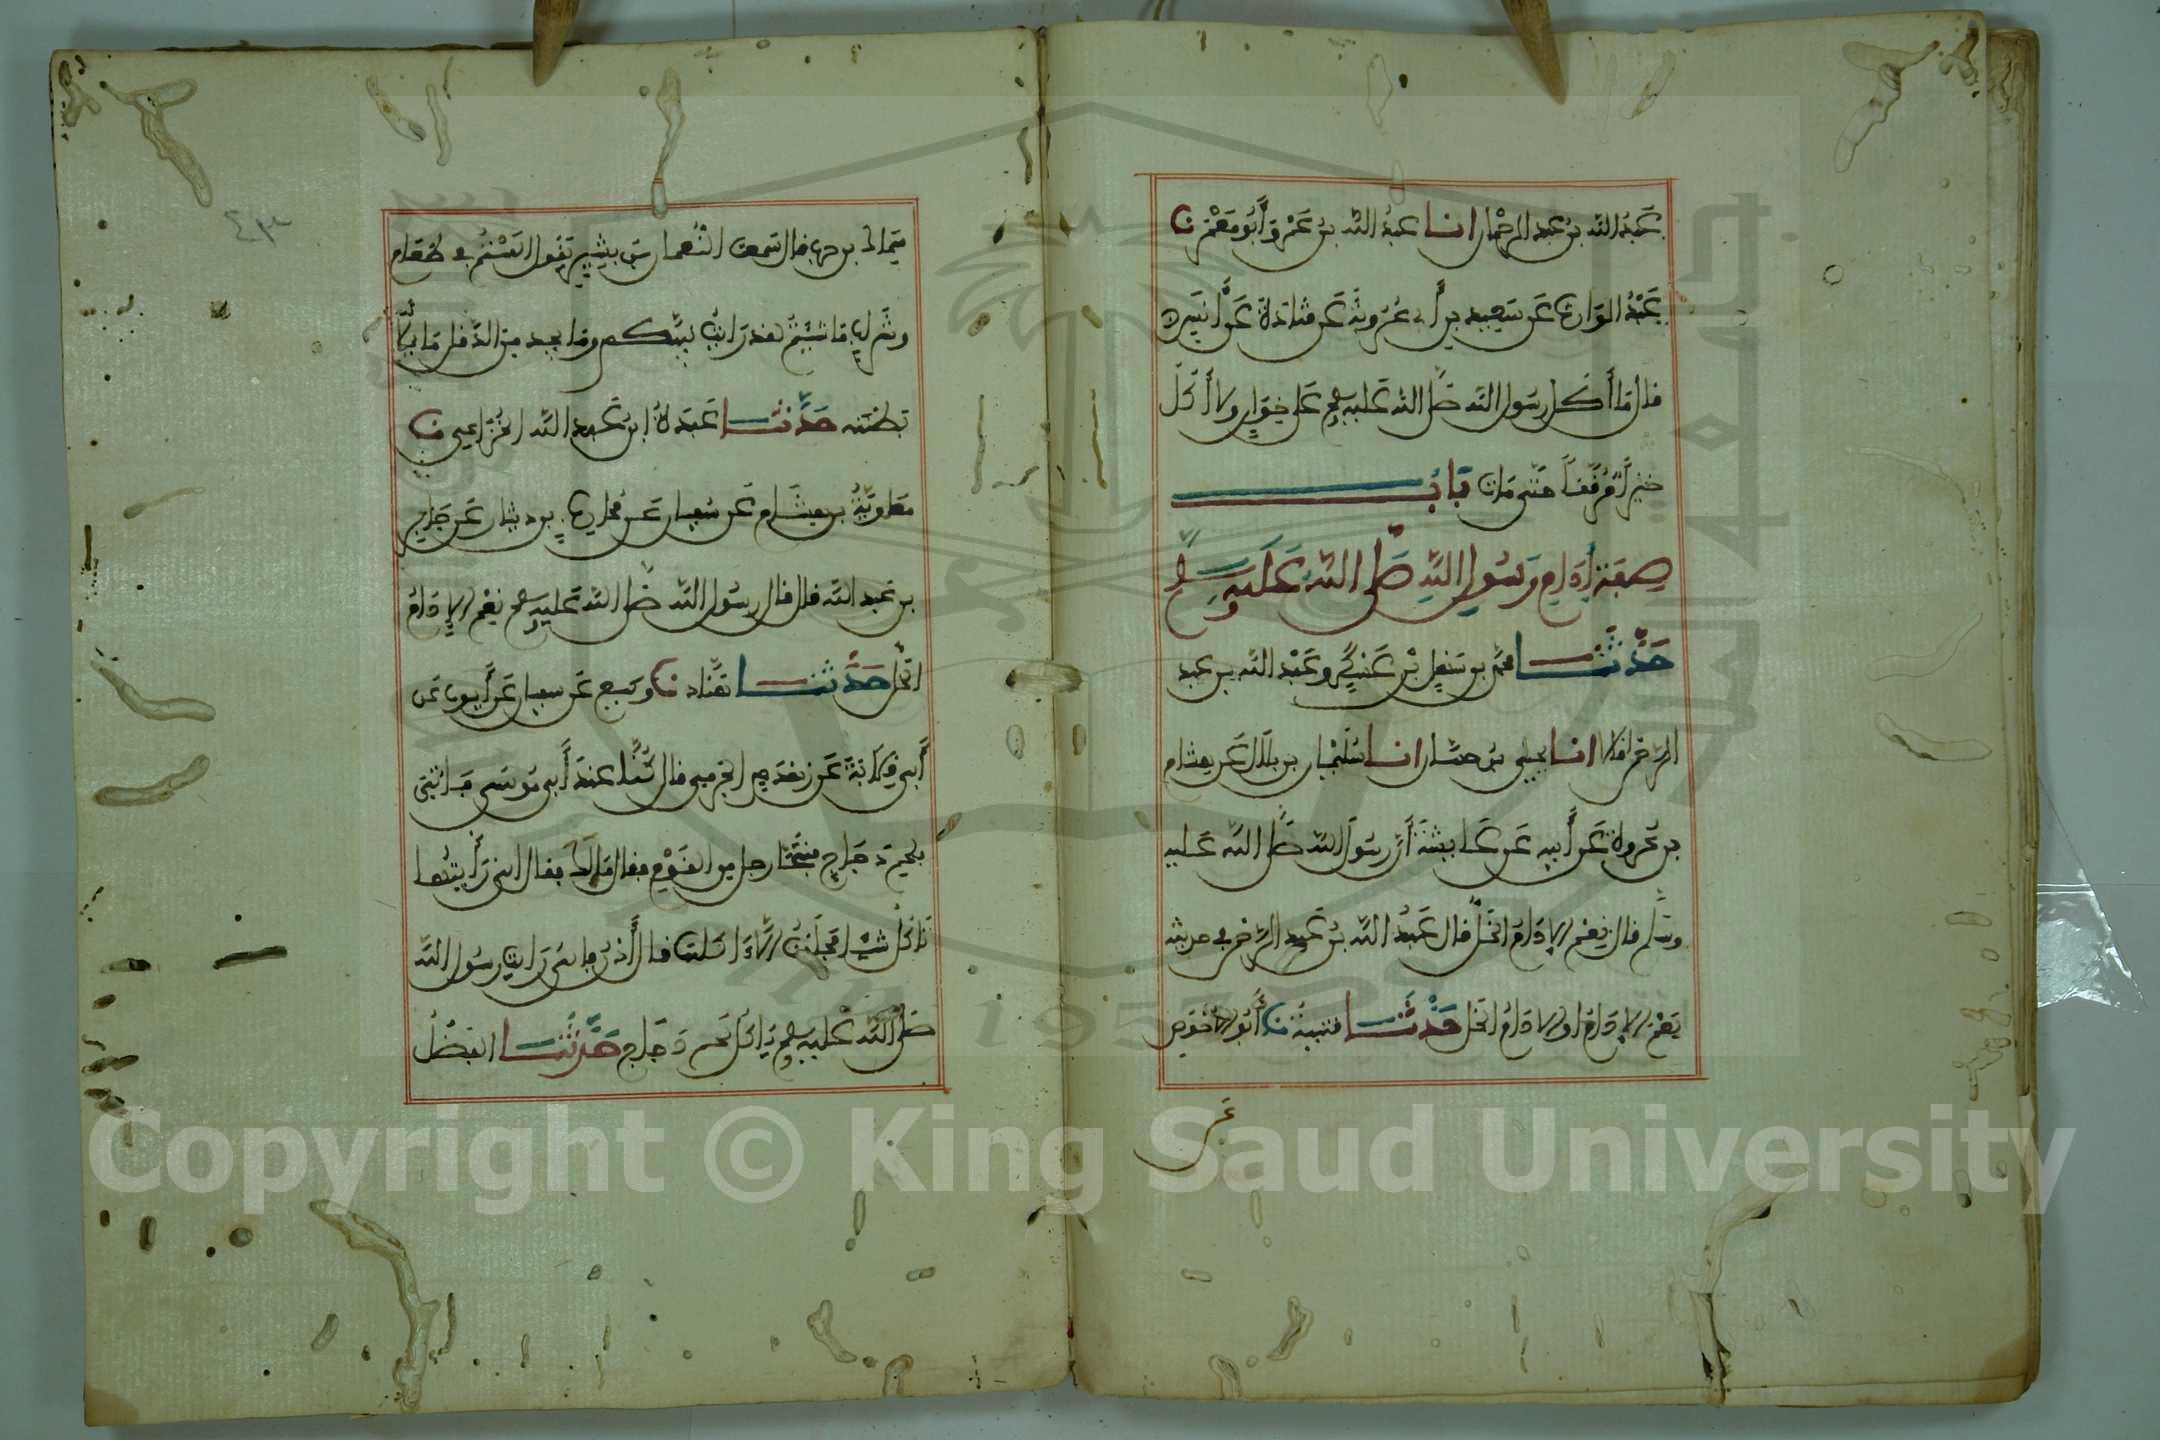 عَبْدُ اللّه بن عبد الرحْمان انا عبدُ اللّه بنُ عَمْرٍو أَبُو مَعْمَرٍ نا
عَبْدُ الوَارِث عَن سَعِيد بن أبي عَرُوبَة عَن قتادَةَ عَن أَنَسٍ
قال مَا أَكل رَسُول اللّه صَلى اللّه عَليه وسلم عَلى خِوَانٍ ولا أَكَلَ
خبْزاً مُرَقَّقاً حَتى مَات بَابُ
صِفَةِ إِدَامِ رَسُولِ اللَّهِ صَلَّى اللَّهُ عَلَيْهِ وَسَلَّمَ
حَدَّثَنَا محمّد بن سَهْلِ بْنِ عَسْكَرٍ وعَبْد اللّه بن عبد
الرّحْمن قالا انا يحيى بنُ حسّان انا سُلَيْمان بن بلَال عَن هشام
بن عُرْوَةَ عَن أبيه عَن عَائِشَةَ أَنّ رسُولَ اللّه صَلى اللّه عَليه
وسَلّم قال نِعْمَ الإِدَامُ الخَلّ قال عَبْدُ اللّه بنُ عَبْدِ الرّحْمن في حديثه
نِعْمَ الإِدَامُ او الإِدَامُ الخَل حَدَّثَنَا قتيبةُ نا أَبُو الأَحْوَصِ
عَن
٤٣
سِمَاكِ بن حرب قال سَمعت النُّعمانَ بنَ بَشِيرٍ يَقُول أَلَسْتُمْ في طَعَام
وشَرَابٍ مَا شئْتُمْ لقد رَأيتُ نَبِيَّكم ومَا يجد مِن الدَّقلِ مَا يَمْلأُ
بَطْنَه حَدَّثَنَا عَبدَةُ ابن عَبْد اللّه الخُزَاعِي نا
مُعَاوِيَةُ بن هِشَام عَن سُفيان عَن مُحَارِبِ بن دِثَار عَن جَابِرِ
بن عَبد اللّه قال قال رسُول اللّه صَلى اللّه عَليه وسلم نِعْمَ الإِدَامُ
الخَلّ حَدَّثَنَا هَنَّاد نا وكيع عَن سفيان عَن أَيوب عَن
أَبي قِلَابَةَ عَن زهْدَمٍ الجَرْمِي قال كُنَّا عندَ أَبي مُوسَى فَأُتِيَ
بلحْمِ دَجَاجٍ فتَنَحَّى رجل مِن القَوْمِ فقال مَا لَكَ فقال إني رَأَيتُهَا
تَأكُلُ شَيئا فحلَفْتُ أَلَّا آكلها قال أُدْنُ فإني رَأيت رسُول اللّه
صَلى اللّه عَليه وسلم يَأكُل لحم دَجَاج حَدَّثَنَا الفَضْلُ
Copyright © King Saud University
1957